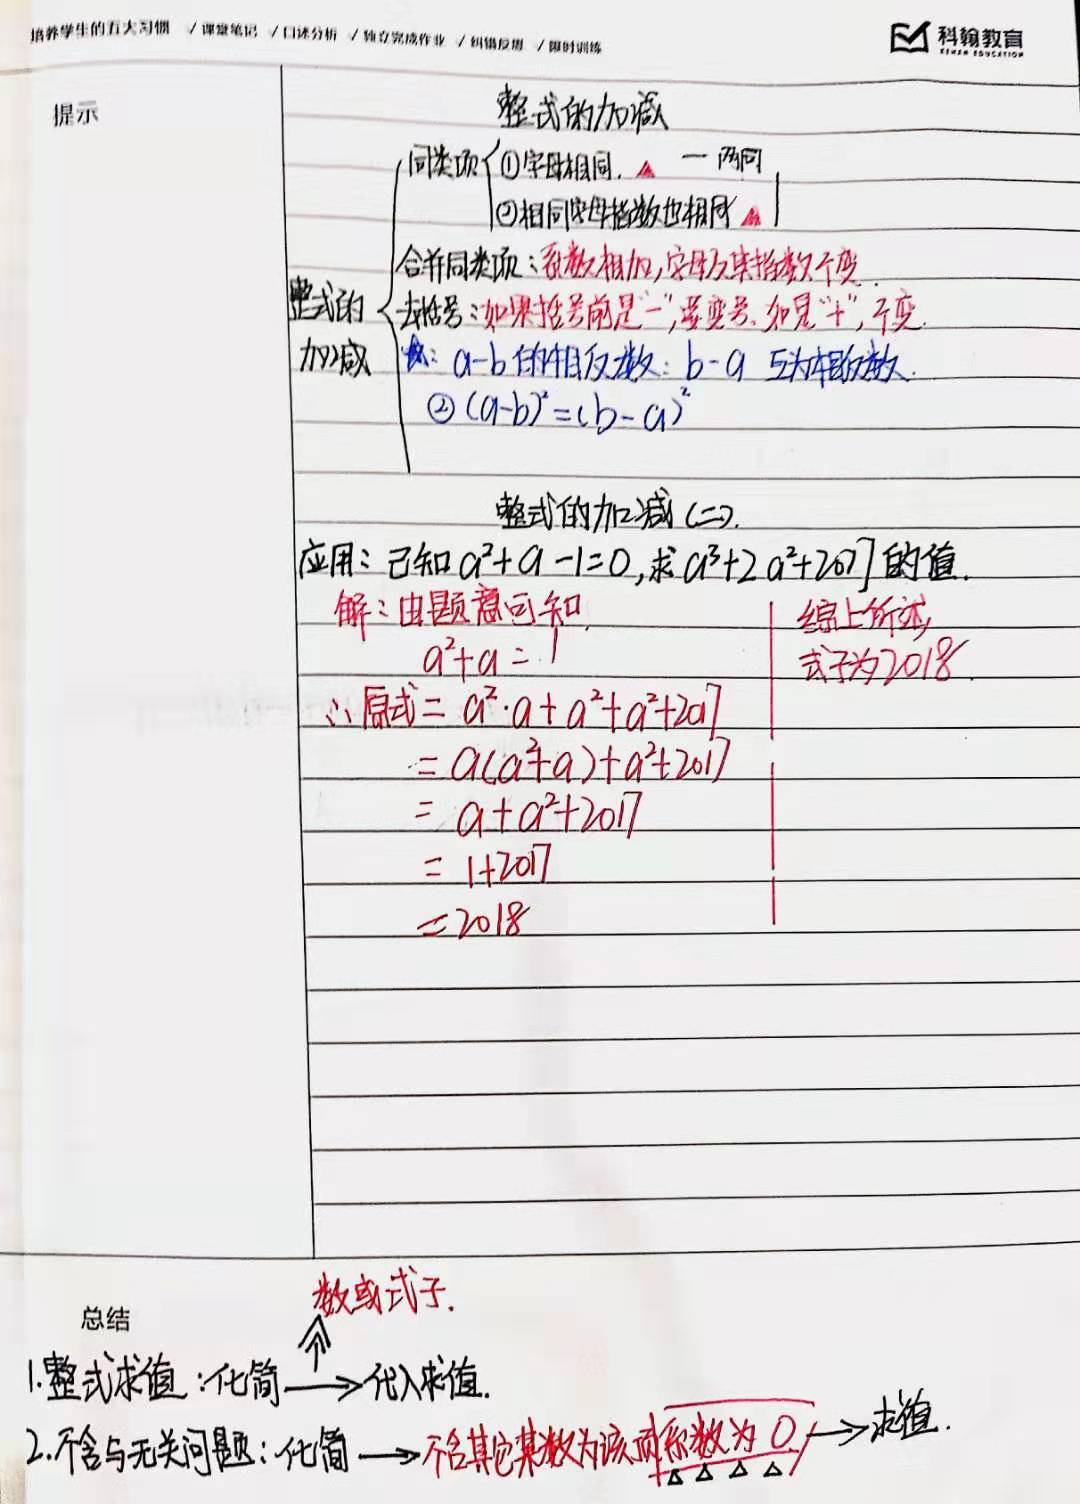 培养学生的五大习惯 ✓课堂笔记 ✓口述分析 ✓独立完成作业 ✓纠错反思 ✓限时训练
科翰教育
KEHAN EDUCATION
提示
整式的加减
同类项 ①字母相同. 一两同
②相同字母指数也相同
合并同类项:系数相加,字母及其指数不变.
整式的加减
去括号:如果括号前是“-”,要变号、如是“+”,不变.
a-b的相反数: b-a 互为相反数.
②(a-b)²=(b-a)²
整式的加减(二).
应用:已知a²+a-1=0,求a³+2a²+2017的值.
解:由题意可知
a²+a=1
∴原式=a²·a+a²+a²+2017
=a(a²+a)+a²+2017
=a+a²+2017
=1+2017
=2018
综上所述,
式子为2018.
总结
数或式子.
1.整式求值:化简→代入求值.
2.不含与无关问题:化简→不含其它某数为该项系数为0→求值.